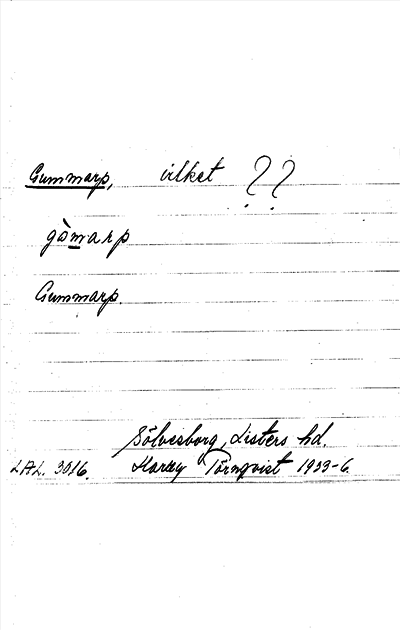 Gummarp, vilket ??
gòmarp
Gummarp.
Sölvesborg, Listers hd.
LAL. 3016. Harry Törnqvist 1933-6